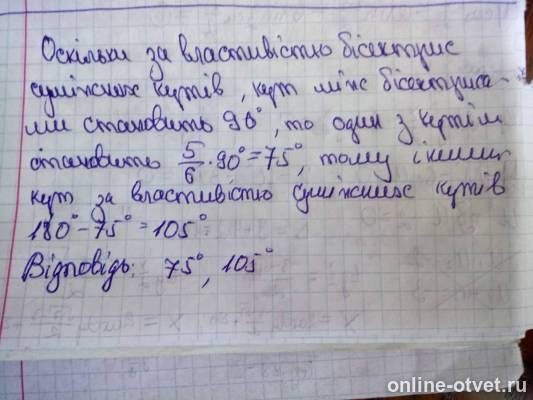 Оскільки за властивістю бісектрис
суміжних кутів, кут між бісектриса-
ми становить 90°, то один з кутів
становить 5/6 · 90° = 75°, тому інший
кут за властивістю суміжних кутів
180° - 75° = 105°
Відповідь: 75°, 105°
online-otvet.ru